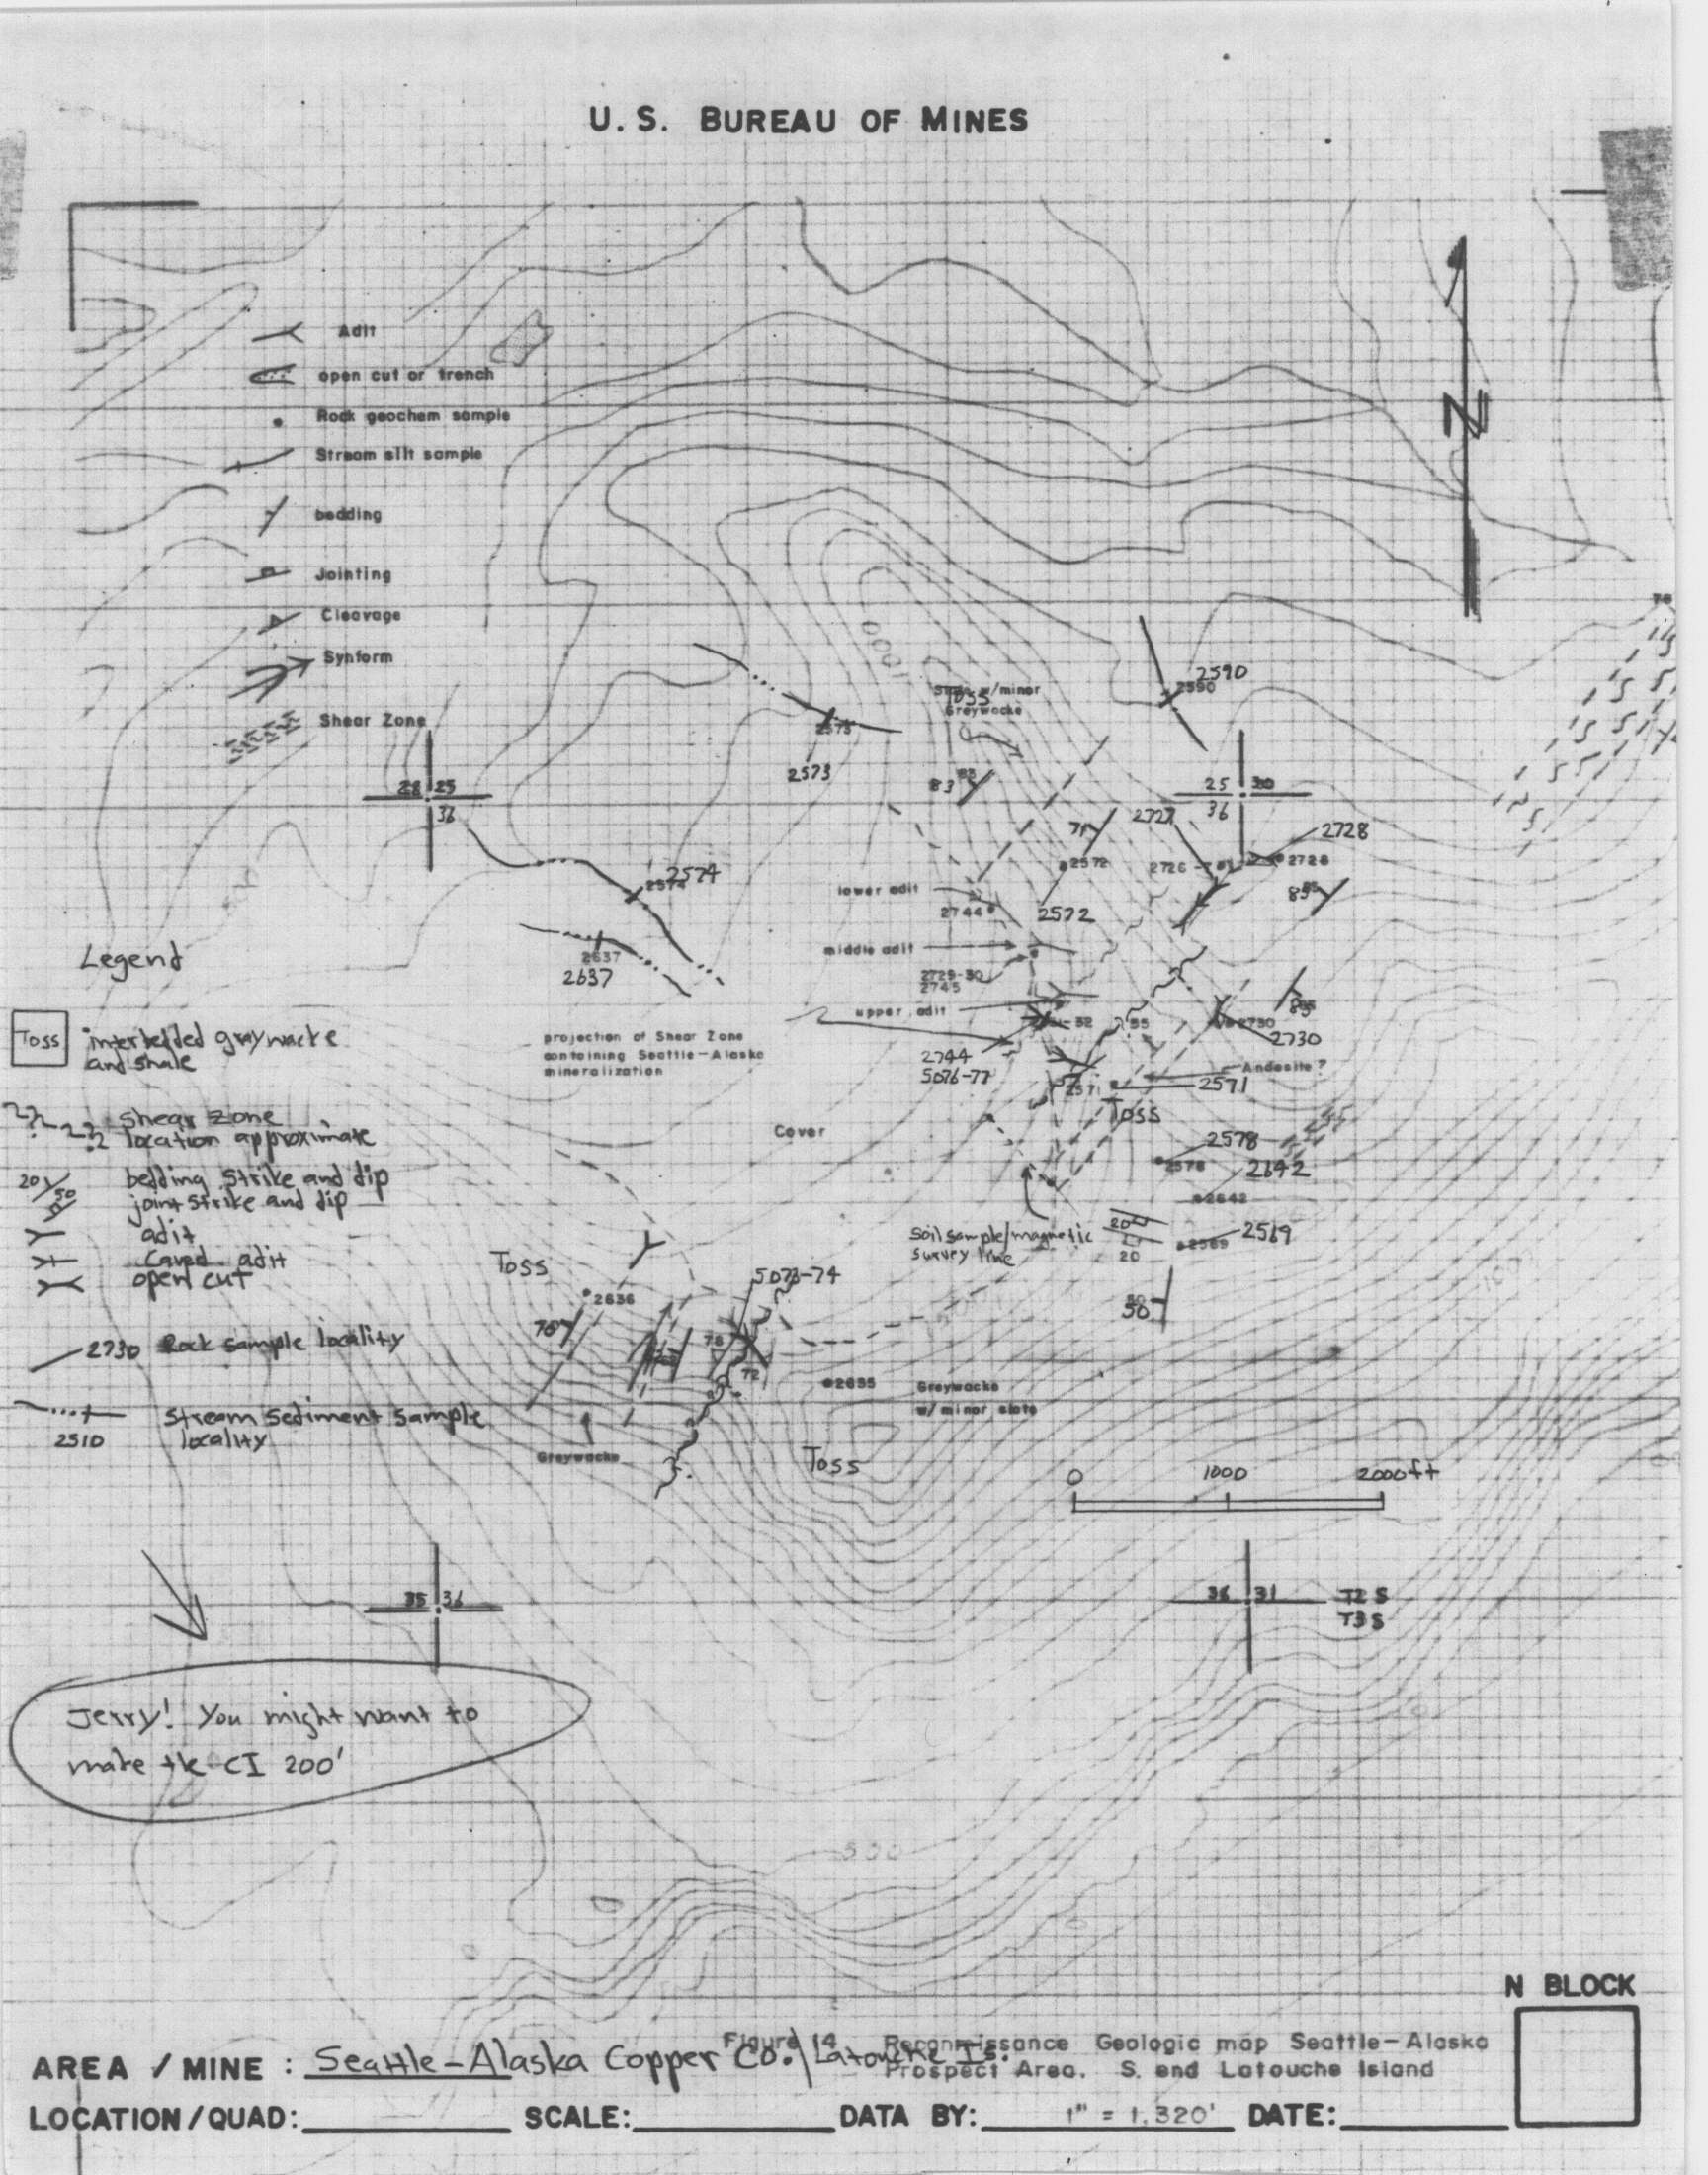 U.S. BUREAU OF MINES
Adit
open cut or trench
Rock geochem sample
Stream silt sample
bedding
Jointing
Cleavage
Synform
Shear Zone
N
2590
2590
w/minor
Toss
Greywacke
2573
2573
83
25
36
25 30
36
71
2727
2728
2572
2726
2728
2574
2574
85
lower adit
2744
2572
middle adit
2637
2637
2729-30
2745
upper adit
Legend
Toss
interbedded graywacke
and shale
projection of Shear Zone
containing Seattle-Alaska
mineralization
2730
2730
2744
5076-77
Andesite?
2571
2571
Toss
shear zone
location approximate
Cover
2578
2578
2642
2642
20 bedding strike and dip
50 joint strike and dip
adit
caved adit
open cut
soil sample/magnetic
survey line
20
20
2569
2569
Toss
2636
5073-74
50
76
78
72
2635
Greywacke
w/minor slate
2730 Rock sample locality
stream sediment sample
locality
2510
Greywacke
Toss
0 1000 2000ft
35 36
36 31
T2S
T3S
Jerry! You might want to
make the CI 200'
500
N BLOCK
Figure 14 Reconnaissance Geologic map Seattle-Alaska
Prospect Area. S. end Latouche Island
AREA / MINE: Seattle-Alaska Copper Co. Latouche Is.
LOCATION/QUAD: SCALE: DATA BY: 1" = 1,320' DATE: